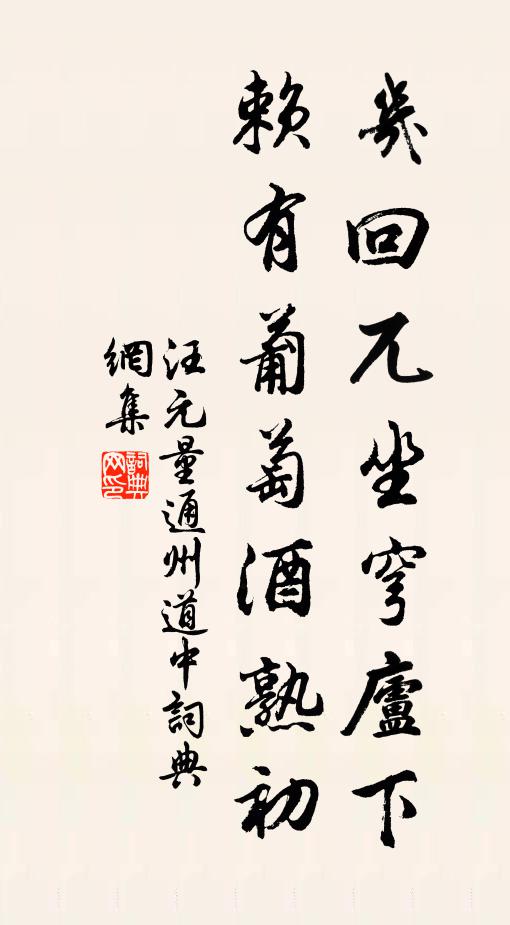 幾回兀坐穹廬下
賴有葡萄酒熟初
汪元量通州道中詞典
網集
詞典
网印